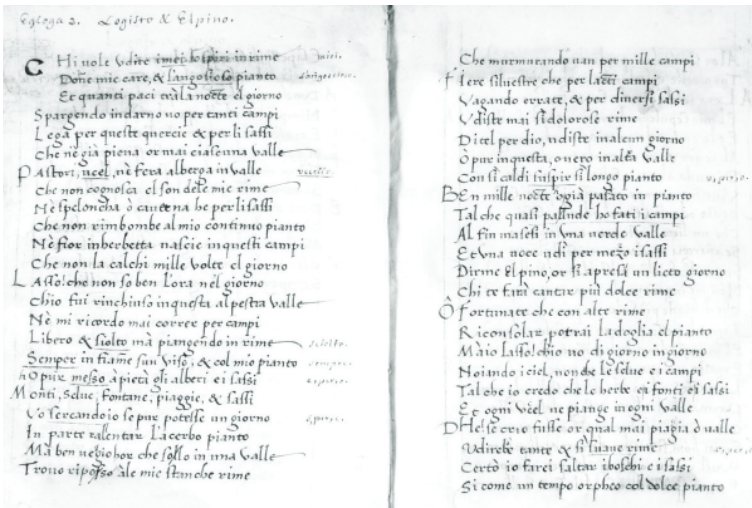 Egloga 2. Logisto & Elpino.
Chi vole udire i miei sospiri in rime
Done mie care, & langostioso pianto
Et quanti paci tra la nocte el giorno
Spargendo indarno vo per tanti campi
Lega per queste quercie & per li sassi
Che n'e gia piena or mai ciascuna valle
Pastori, ucel, ne fera alberga in valle
Che non cognosca el son dele mie rime
Ne speloncha o caverna he per li sassi
Che non rimbombe al mio continuo pianto
Ne fior in herbetta nascie in questi campi
Che non la calchi mille volte el giorno
Lasso! che non so ben l'ora nel giorno
Chio fui rinchiuso in questa alpestra valle
Ne mi ricordo mai correr per campi
Libero & siolto ma piangendo in rime
Semper in fiame sun viso, & col mio pianto
hO pur messo a pieta gli alberi e i sassi
Monti, selue, fontane, piaggie, & sassi
Vo sercando io se pur potesse un giorno
In parte ralentar l'acerbo pianto
Ma ben vegio hor che sollo in una valle
Trovo riposso ale mie stanche rime
miei.
d'angoscioso.
uccello.
sciolto.
sempre.
Che murmurando van per mille campi
Fiere silvestre che per lacti campi
Vagando errate, & per diversi sassi
Udiste mai si dolorose rime
Ditel per dio, udiste in alcun giorno
O pur in questa, o vero in alta valle
Con si caldi suspir si longo pianto
BEn mille nocte ogia pasato in pianto
Tal che quasi pallude ho fati i campi
Al fin maseti in una verde valle
Et una voce udi per mezo i sassi
Dirme Elpino, or si apresa un lieto giorno
Chi te fara cantar piu dolce rime
O Fortunate che con altre rime
Riconsolar potrai la doglia el pianto
Ma io lasso! chio vo di giorno in giorno
Noiando i ciel, non che le selve e i campi
Tal che io credo che le herbe e i fonti e i sassi
Et ogni ucel ne piange in ogni valle
DHe! se cevo fusse or qual mai piagia o valle
Udirebe tante & si suave rime
Certo io farei saltar i boschi e i sassi
Si come un tempo orpheo col dolce pianto